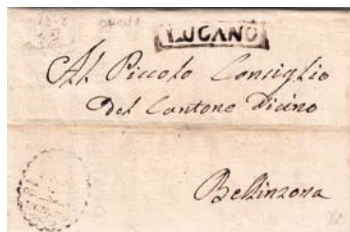 LUGANO
Al Piccolo Consiglio
Del Cantone Ticino
Bellinzona